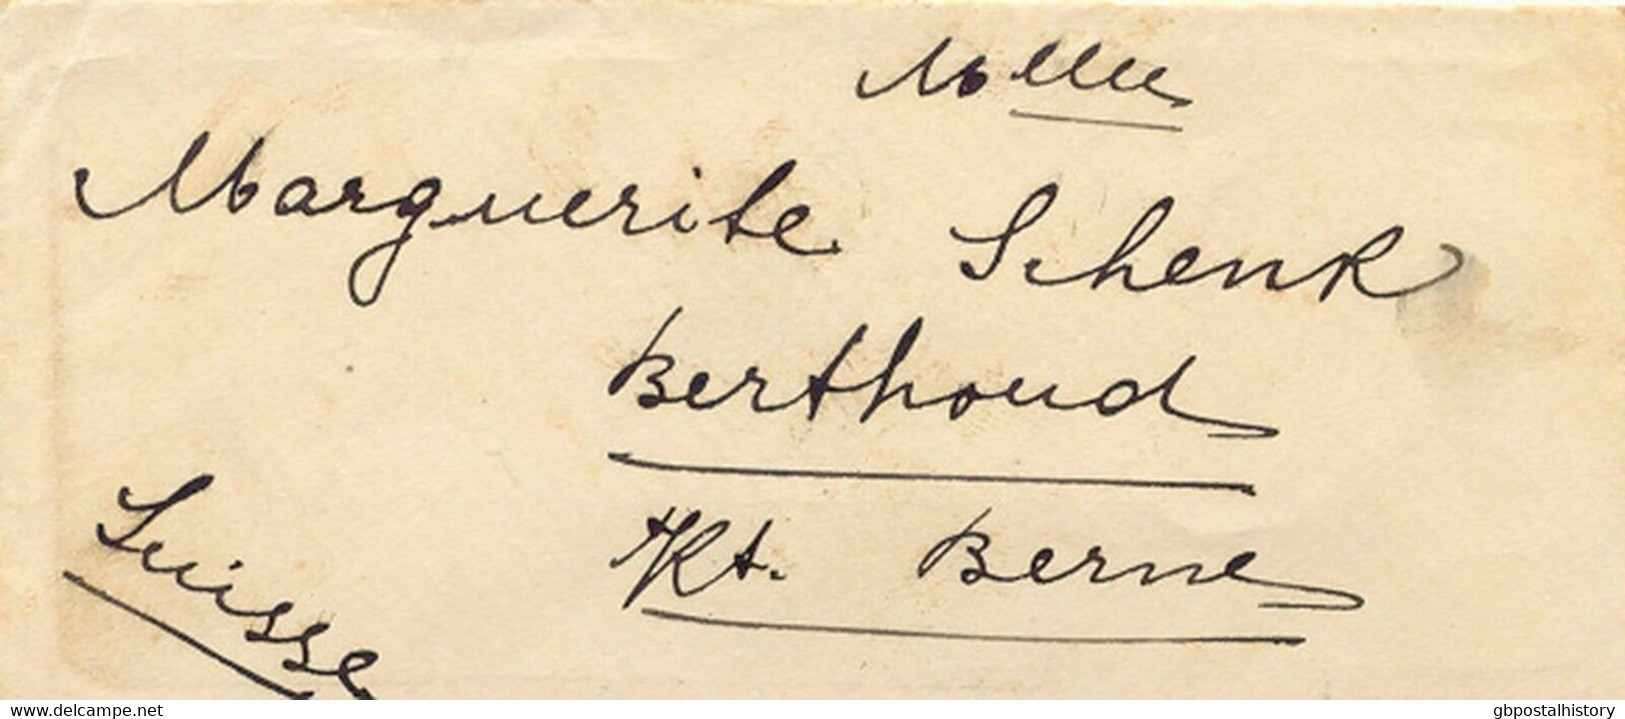 Mlle
Marguerite Schenk
Berthoud
Kt. Berne
Suisse
www.delcampe.net
gbpostalhistory